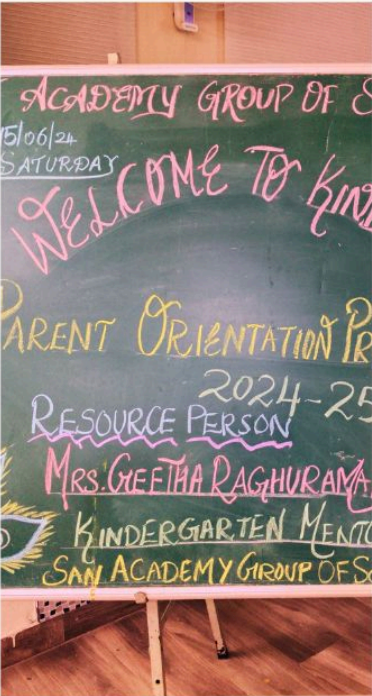 ACADEMY GROUP OF S
15/06/24
SATURDAY
WELCOME TO KIN
PARENT ORIENTATION PR
2024-25
RESOURCE PERSON
MRS. GEETHA RAGHURAMA
KINDERGARTEN MENTO
SAN ACADEMY GROUP OF SC